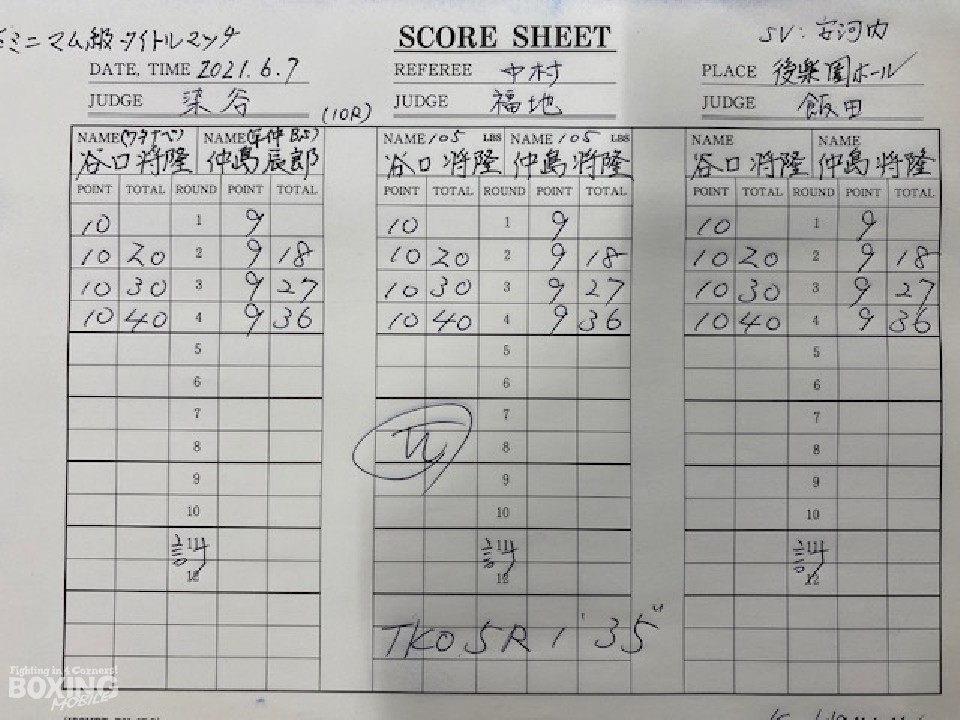 ミニマム級タイトルマッチ
SCORE SHEET
SV: 古河内
DATE, TIME 2021.6.7
REFEREE 中村
PLACE 後楽園ホール
JUDGE 染谷
(10R)
JUDGE 福地
JUDGE 飯田
NAME (ワタナベ) NAME (平仲 BS) NAME 105 LBS NAME 105 LBS NAME NAME
谷口将隆 仲島辰郎 谷口将隆 仲島将隆 谷口将隆 仲島将隆
POINT TOTAL ROUND POINT TOTAL POINT TOTAL ROUND POINT TOTAL POINT TOTAL ROUND POINT TOTAL
10 1 9 10 1 9 10 1 9
10 20 2 9 18 10 20 2 9 18 10 20 2 9 18
10 30 3 9 27 10 30 3 9 27 10 30 3 9 27
10 40 4 9 36 10 40 4 9 36 10 40 4 9 36
5 5 5
6 6 6
7 7 7
8 8 8
9 9 9
10 10 10
計 11 計 11 計 11
12 12 12
TKO 5R 1'35"
Fighting in 4 Corners!
BOXING
MOBILE